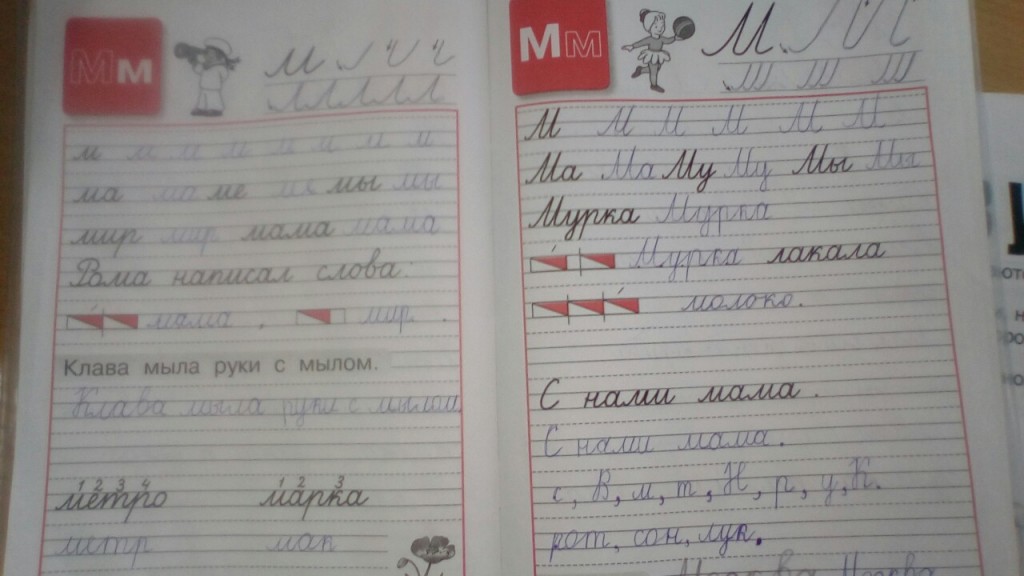 Мм
м м м м м м м м
ма ма ме ме мы мы
мир мир мама мама
Рома написал слова:
мама, мир.
Клава мыла руки с мылом.
Клава мыла руки с мылом
1 2 3 4 1 2 3
метро марка
метр мак
Мм
М М М М М М
Ма Ма Му Му Мы Мы
Мурка Мурка
Мурка лакала
молоко.
С нами мама.
С нами мама.
с, В, м, т, Н, р, у, К.
рот, сон, лук.
Москва